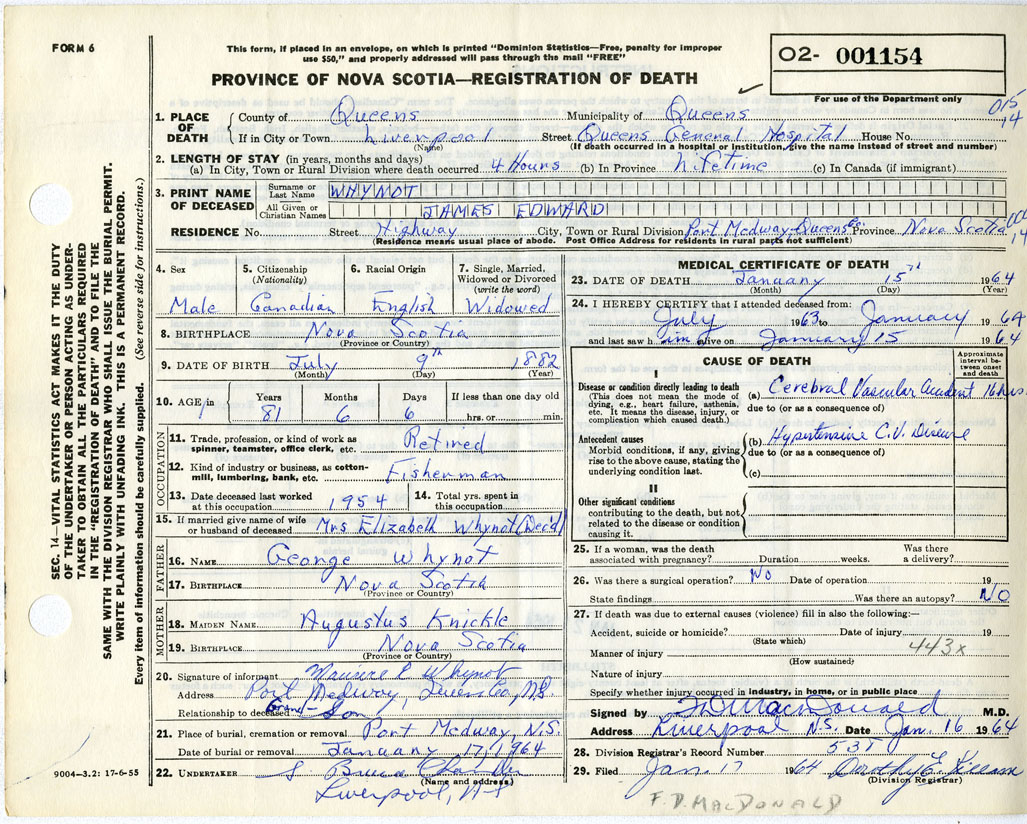 FORM 6
This form, if placed in an envelope, on which is printed "Dominion Statistics—Free, penalty for improper
use $50," and properly addressed will pass through the mail "FREE"
O2- 001154
PROVINCE OF NOVA SCOTIA—REGISTRATION OF DEATH
For use of the Department only
015
14
1. PLACE OF DEATH County of Queens Municipality of Queens
If in City or Town Liverpool Street Queens General Hospital House No.
(Name) (If death occurred in a hospital or institution, give the name instead of street and number)
2. LENGTH OF STAY (in years, months and days)
(a) In City, Town or Rural Division where death occurred 4 Hours (b) In Province Lifetime (c) In Canada (if immigrant)
3. PRINT NAME OF DECEASED Surname or Last Name WHYNOT
All Given or Christian Names JAMES EDWARD
RESIDENCE No. Street Highway City, Town or Rural Division Port Medway Queens Co Province Nova Scotia
(Residence means usual place of abode. Post Office Address for residents in rural parts not sufficient)
14
SEC. 14—VITAL STATISTICS ACT MAKES IT THE DUTY
OF THE UNDERTAKER OR PERSON ACTING AS UNDER-
TAKER TO OBTAIN ALL THE PARTICULARS REQUIRED
IN THE "REGISTRATION OF DEATH" AND TO FILE THE
SAME WITH THE DIVISION REGISTRAR WHO SHALL ISSUE THE BURIAL PERMIT.
WRITE PLAINLY WITH UNFADING INK. THIS IS A PERMANENT RECORD.
Every item of information should be carefully supplied. (See reverse side for instructions.)
4. Sex 5. Citizenship (Nationality) 6. Racial Origin 7. Single, Married, Widowed or Divorced (write the word)
Male Canadian English Widowed
8. BIRTHPLACE Nova Scotia
(Province or Country)
9. DATE OF BIRTH July 9th 1882
(Month) (Day) (Year)
10. AGE in Years Months Days If less than one day old
81 6 6 hrs. or min.
OCCUPATION
11. Trade, profession, or kind of work as
spinner, teamster, office clerk, etc. Retired
12. Kind of industry or business, as cotton-
mill, lumbering, bank, etc. Fisherman
13. Date deceased last worked at this occupation 1954 14. Total yrs. spent in this occupation
15. If married give name of wife or husband of deceased Mrs Elizabeth Whynot (Dec'd)
FATHER
16. NAME George Whynot
17. BIRTHPLACE Nova Scotia
(Province or Country)
MOTHER
18. MAIDEN NAME Augustus Knickle
19. BIRTHPLACE Nova Scotia
(Province or Country)
20. Signature of informant Whynot
Address Port Medway, N.S.
Relationship to deceased Grand-Son
21. Place of burial, cremation or removal Port Medway, N.S.
Date of burial or removal January 17, 1964
22. UNDERTAKER S Bruce
(Name and address)
Liverpool, N-S
9004—3.2: 17-6-55
MEDICAL CERTIFICATE OF DEATH
23. DATE OF DEATH January 15th 1964
(Month) (Day) (Year)
24. I HEREBY CERTIFY that I attended deceased from:
July 1963 to January 1964
and last saw him alive on January 15 1964
CAUSE OF DEATH
Approximate interval be-tween onset and death
I
Disease or condition directly leading to death
(This does not mean the mode of
dying, e.g., heart failure, asthenia,
etc. It means the disease, injury, or
complication which caused death.)
(a) Cerebral Vascular Accident 16 hrs.
due to (or as a consequence of)
Antecedent causes
Morbid conditions, if any, giving
rise to the above cause, stating the
underlying condition last.
(b) Hypertensive C.V. Disease
due to (or as a consequence of)
(c)
II
Other significant conditions
contributing to the death, but not
related to the disease or condition
causing it.
25. If a woman, was the death associated with pregnancy? Duration weeks. Was there a delivery?
26. Was there a surgical operation? No Date of operation 19
State findings Was there an autopsy? NO
27. If death was due to external causes (violence) fill in also the following:—
Accident, suicide or homicide? Date of injury 19
(State which)
443x
Manner of injury
(How sustained)
Nature of injury
Specify whether injury occurred in industry, in home, or in public place
Signed by F D MacDonald M.D.
Address Liverpool N.S. Date Jan. 16 1964
28. Division Registrar's Record Number 535
29. Filed Jan. 17 1964 Dorothy E.
(Division Registrar)
F. D. MACDONALD